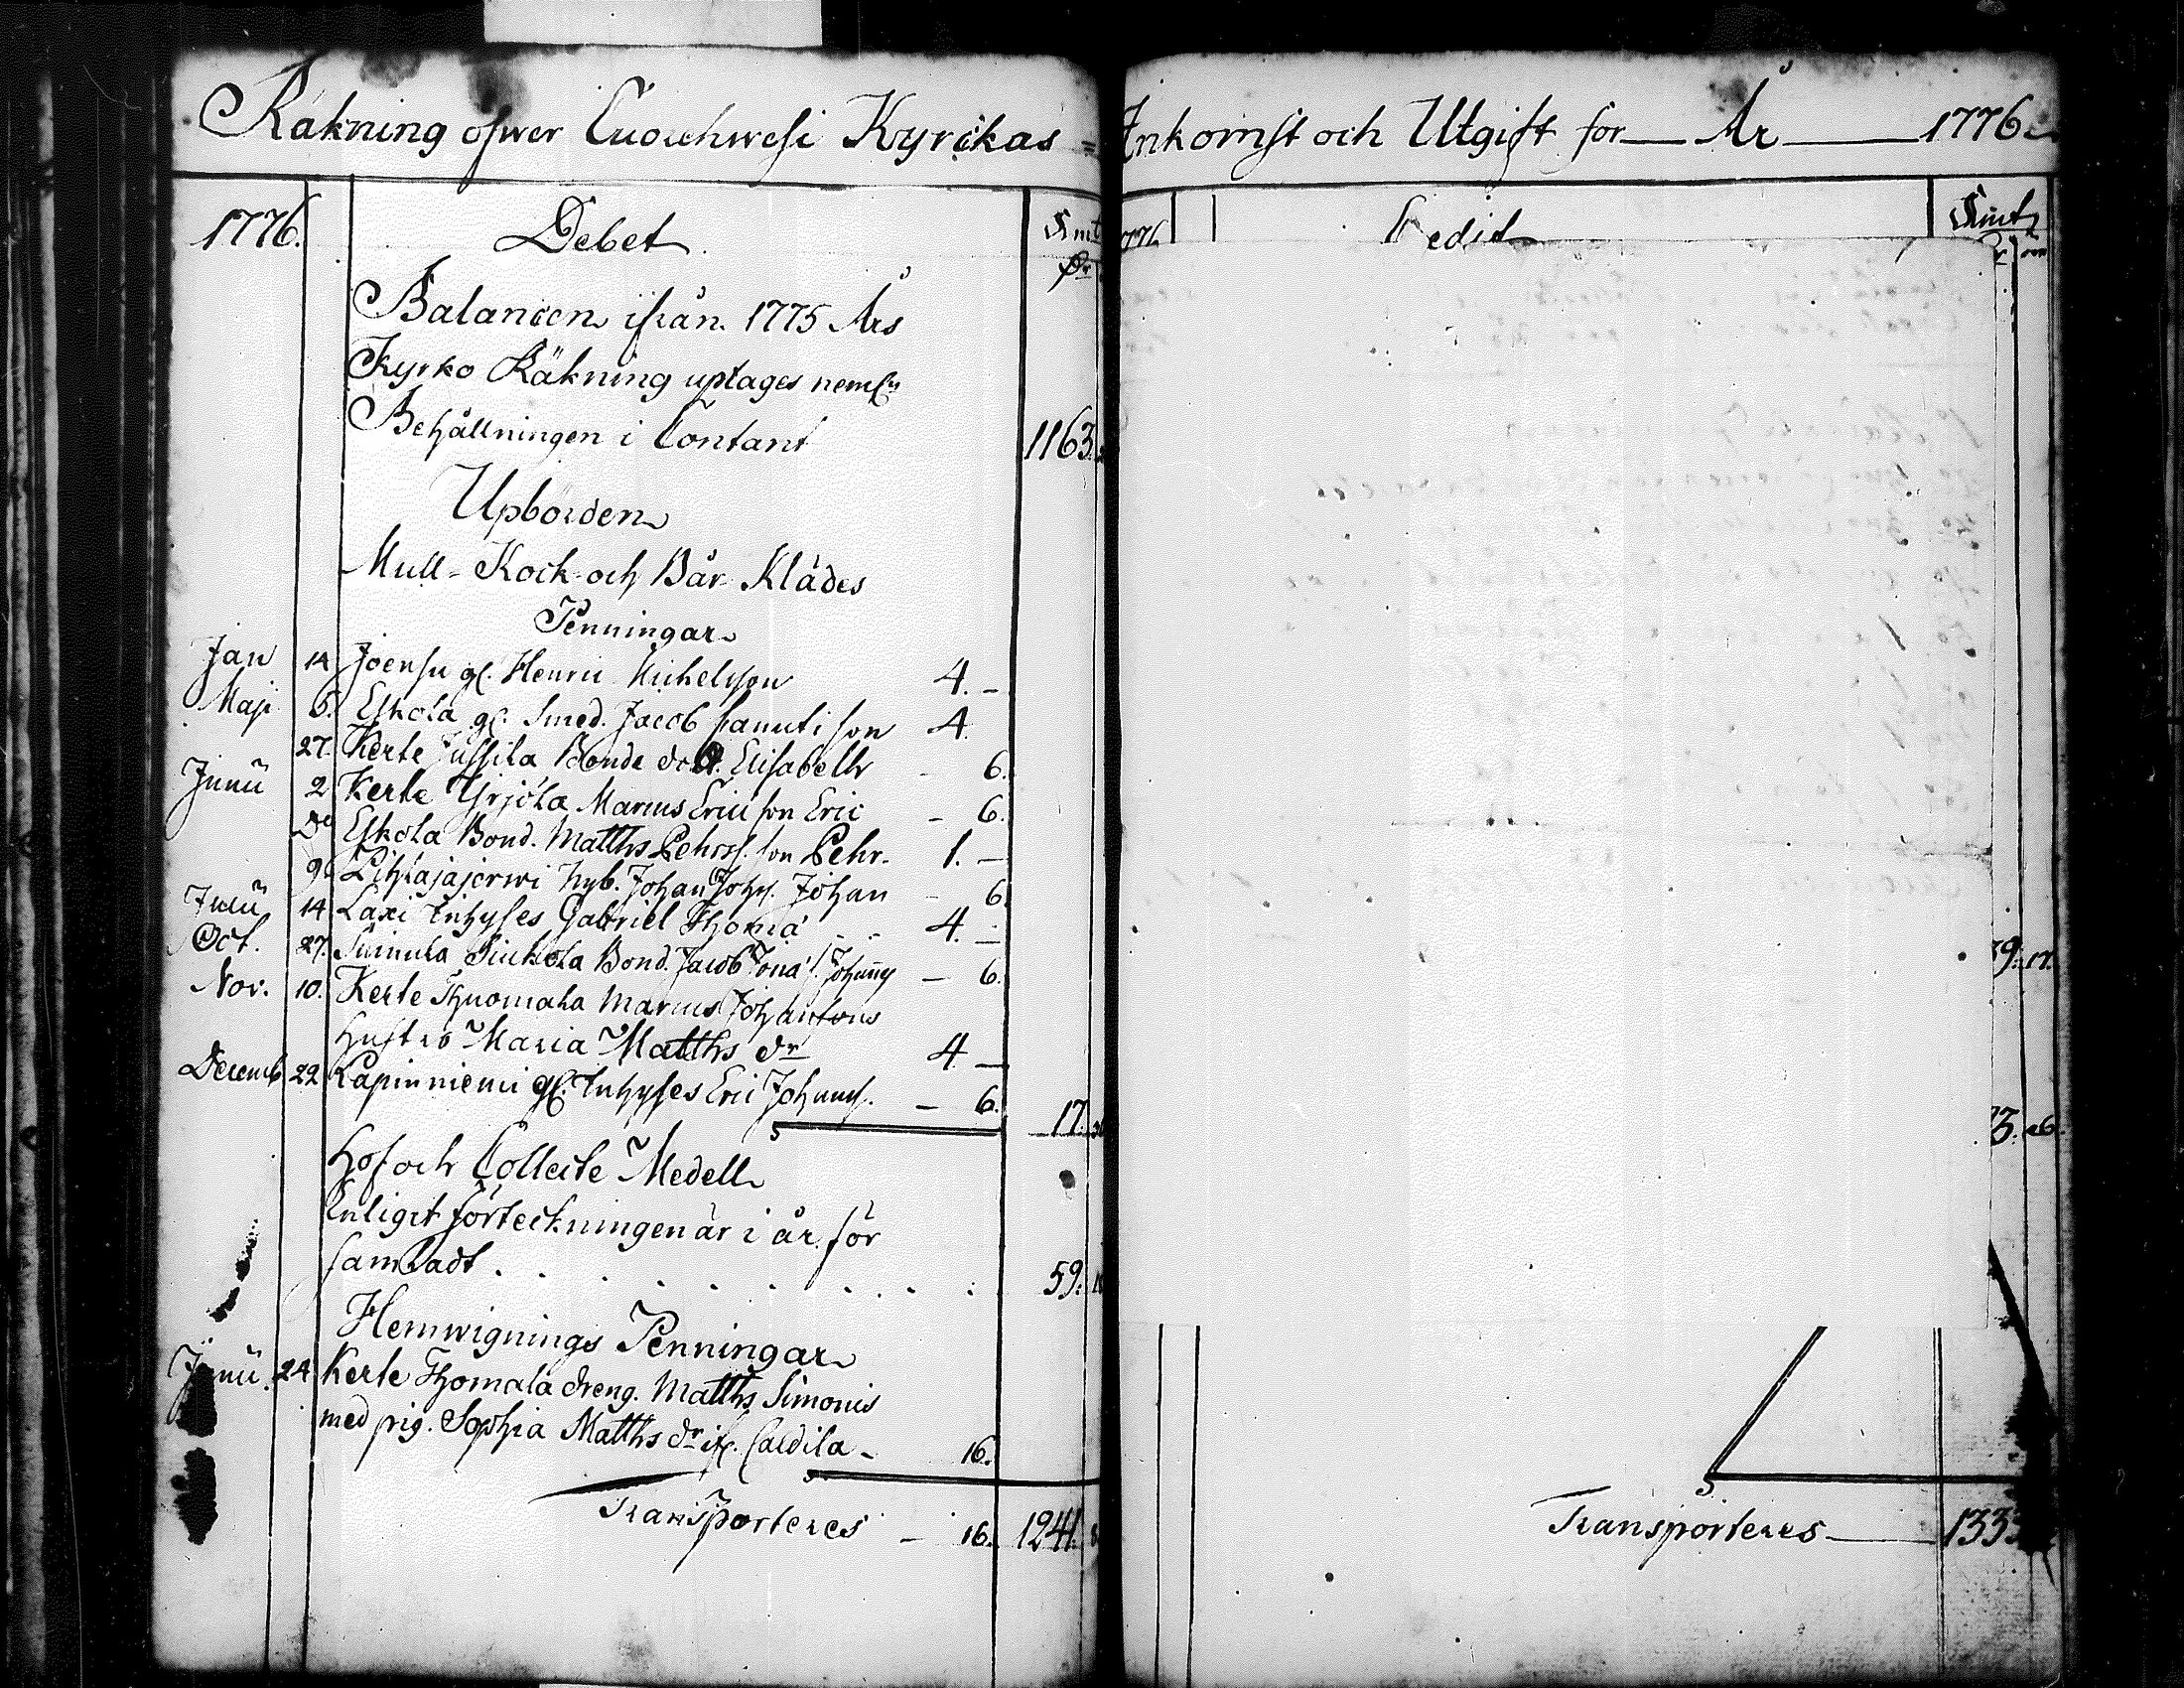 Räkning öfwer Cuorehwesi Kyrckas =
1776. Debet Smt
Dr
Balancen ifrån 1775 Års
Kyrko Räkning uptages neml:n
Behållningen i Contant 1163.
Upbörden
Mull-Kock och Bår Klädes
Penningar
Jan 14 Joensu gl. Henric Michelsson 4. –
Maji 6. Eskola gl. Smed. Jacob son 4.
27. Kerte Jussila Bonde dr Elisabeth – 6.
Junii 2 Kerte Yrjölä Marcus Ericsson Eric – 6.
Do Eskola Bond. Matths Pehrss. son Pehr – 1. –
9. Nyb. Johan Johs. Johan – 6.
Julii 14 Laxi Inhyses Gabriel Thomæ 4. –
Oct. 27. Suinula Siukola Bond. Jacob Jonæ – 6.
Nov. 10. Kerte Thuomala Marcus Johantons
hustro Maria Matths dr 4 –
Decemb 22 Lapinniemi gl. Inhyses Eric Johans. – 6. 17.
Hof och Collecte Medell
Enligit förteckningen är i år för
samladt . . . . . . . . . 59.
Hemwignings Penningar
Junii. 24 Kerte Thomala dreng. Matths Simonis
med pig. Sophia Matths dr if. Caldila – 16.
Transporteres – 16. 1241.
Inkomst och Utgift för — År — 1776
1776 Credit Smt
9: 17.
3: 26.
Transporteres — 1333